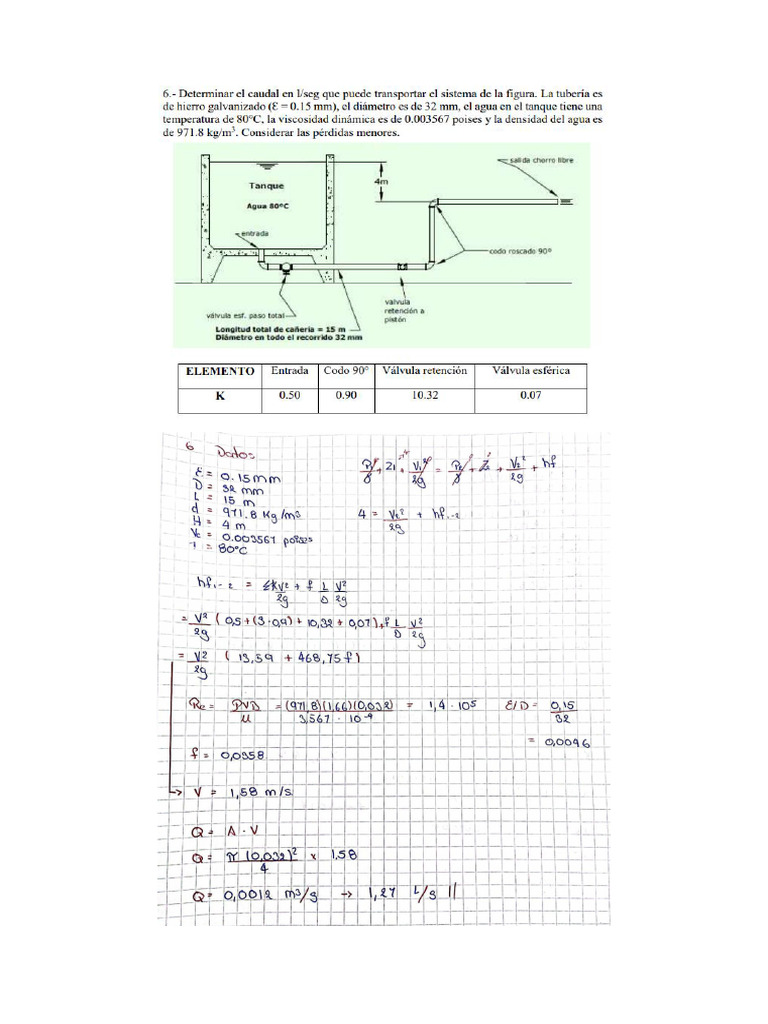 6.- Determinar el caudal en l/seg que puede transportar el sistema de la figura. La tubería es
de hierro galvanizado (Ɛ = 0.15 mm), el diámetro es de 32 mm, el agua en el tanque tiene una
temperatura de 80°C, la viscosidad dinámica es de 0.003567 poises y la densidad del agua es
de 971.8 kg/m³. Considerar las pérdidas menores.
salida chorro libre
4m
Tanque
Agua 80ºC
entrada
codo roscado 90º
válvula esf. paso total
válvula
retención a
pistón
Longitud total de cañería = 15 m
Diámetro en todo el recorrido 32 mm
ELEMENTO Entrada Codo 90° Válvula retención Válvula esférica
K 0.50 0.90 10.32 0.07
6 Datos
Ɛ = 0.15mm
D = 32 mm
L = 15 m
d = 971.8 Kg/m3
H = 4 m
Vc = 0.003567 poises
T = 80°C
P1/γ + Z1 + V1²/2g = P2/γ + Z2 + V2²/2g + hf
4 = V2²/2g + hf1-2
hf1-2 = ΣkV²/2g + f L/D V²/2g
= V²/2g (0,5+(3·0,9)+10,32+0,07)+f L/D V²/2g
= V²/2g (13,59 + 468,75f)
Re = PVD/μ = (971,8)(1,66)(0,032)/3,567·10⁻⁴ = 1,4·10⁵ Ɛ/D = 0,15/32
= 0,0046
f = 0,0358
→ V = 1,58 m/s
Q = A·V
Q = π(0,032)²/4 x 1,58
Q = 0,0012 m3/s → 1,27 L/s //